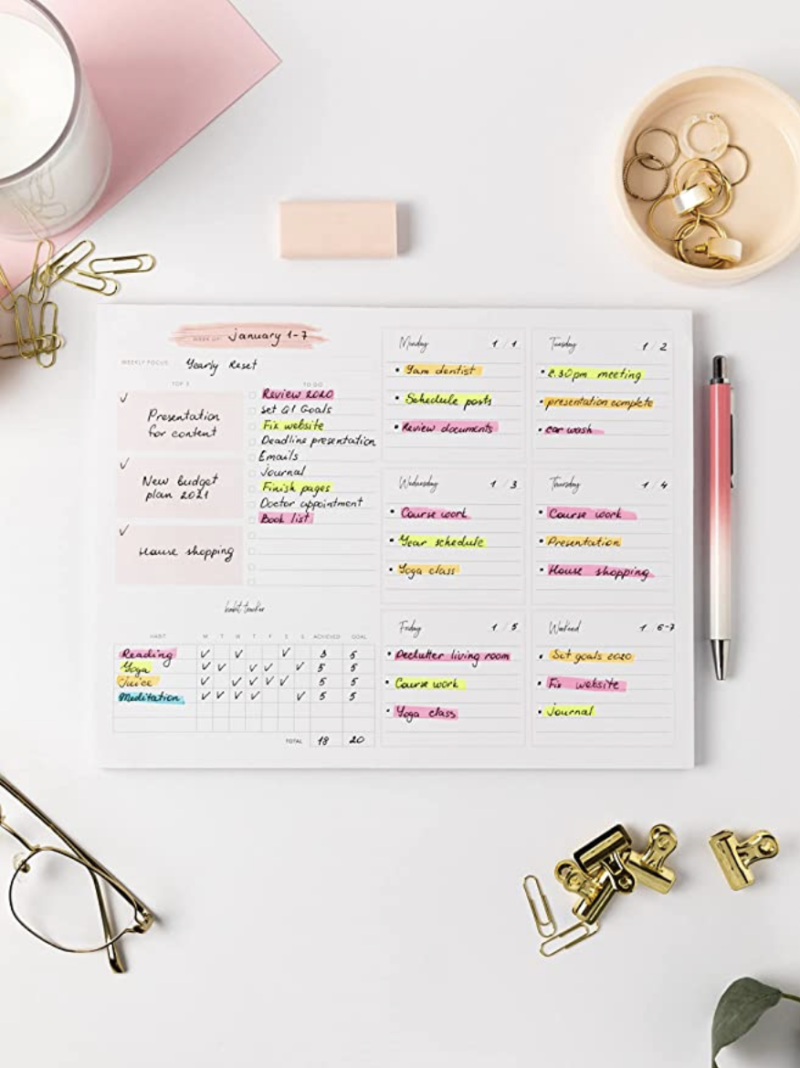 WEEK OF: January 1-7
WEEKLY FOCUS: Yearly Reset
TOP 3
Presentation
for content
New budget
plan 2021
House shopping
TO DO
Review 2020
Set Q1 Goals
Fix website
Deadline presentation
Emails
Journal
Finish pages
Doctor appointment
Book list
habit tracker
HABIT M T W T F S S ACHIEVED GOAL
Reading ✓ ✓ ✓ 3 5
Yoga ✓ ✓ ✓ ✓ ✓ 5 5
Juice ✓ ✓ ✓ ✓ ✓ 5 5
Meditation ✓ ✓ ✓ ✓ ✓ 5 5
TOTAL 18 20
Monday 1 / 1
• 9am dentist
• Schedule posts
• Review documents
Tuesday 1 / 2
• 2.30pm meeting
• presentation complete
• car wash
Wednesday 1 / 3
• Course work
• Year schedule
• Yoga class
Thursday 1 / 4
• Course work
• Presentation
• House shopping
Friday 1 / 5
• Declutter living room
• Course work
• Yoga class
Weekend 1 / 6-7
• Set goals 2020
• Fix website
• Journal